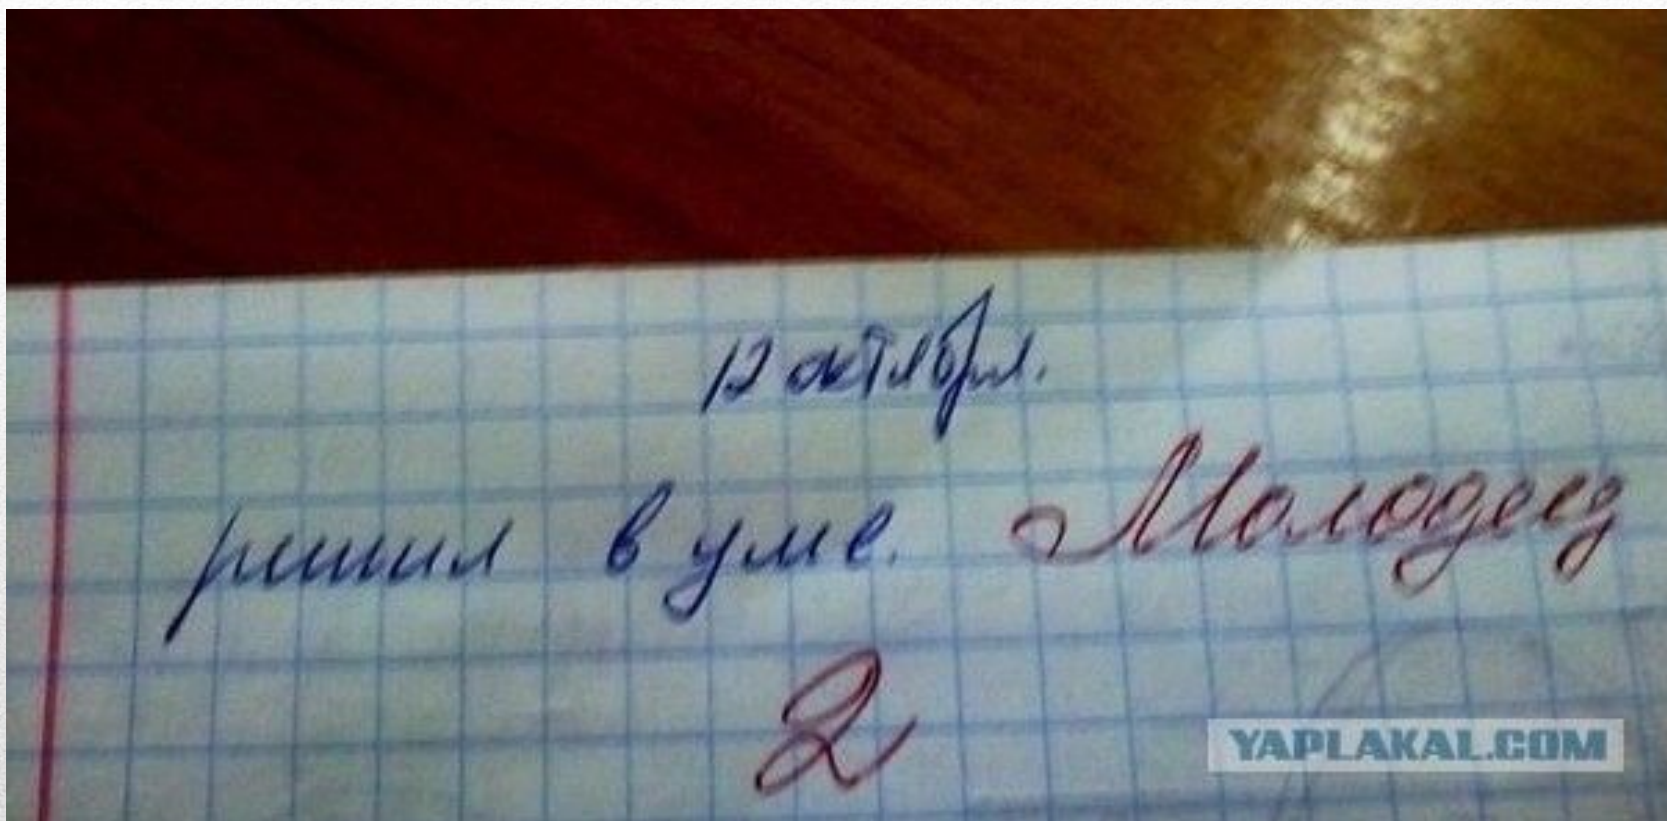 12 октября.
решил в уме. Молодец
2
YAPLAKAL.COM